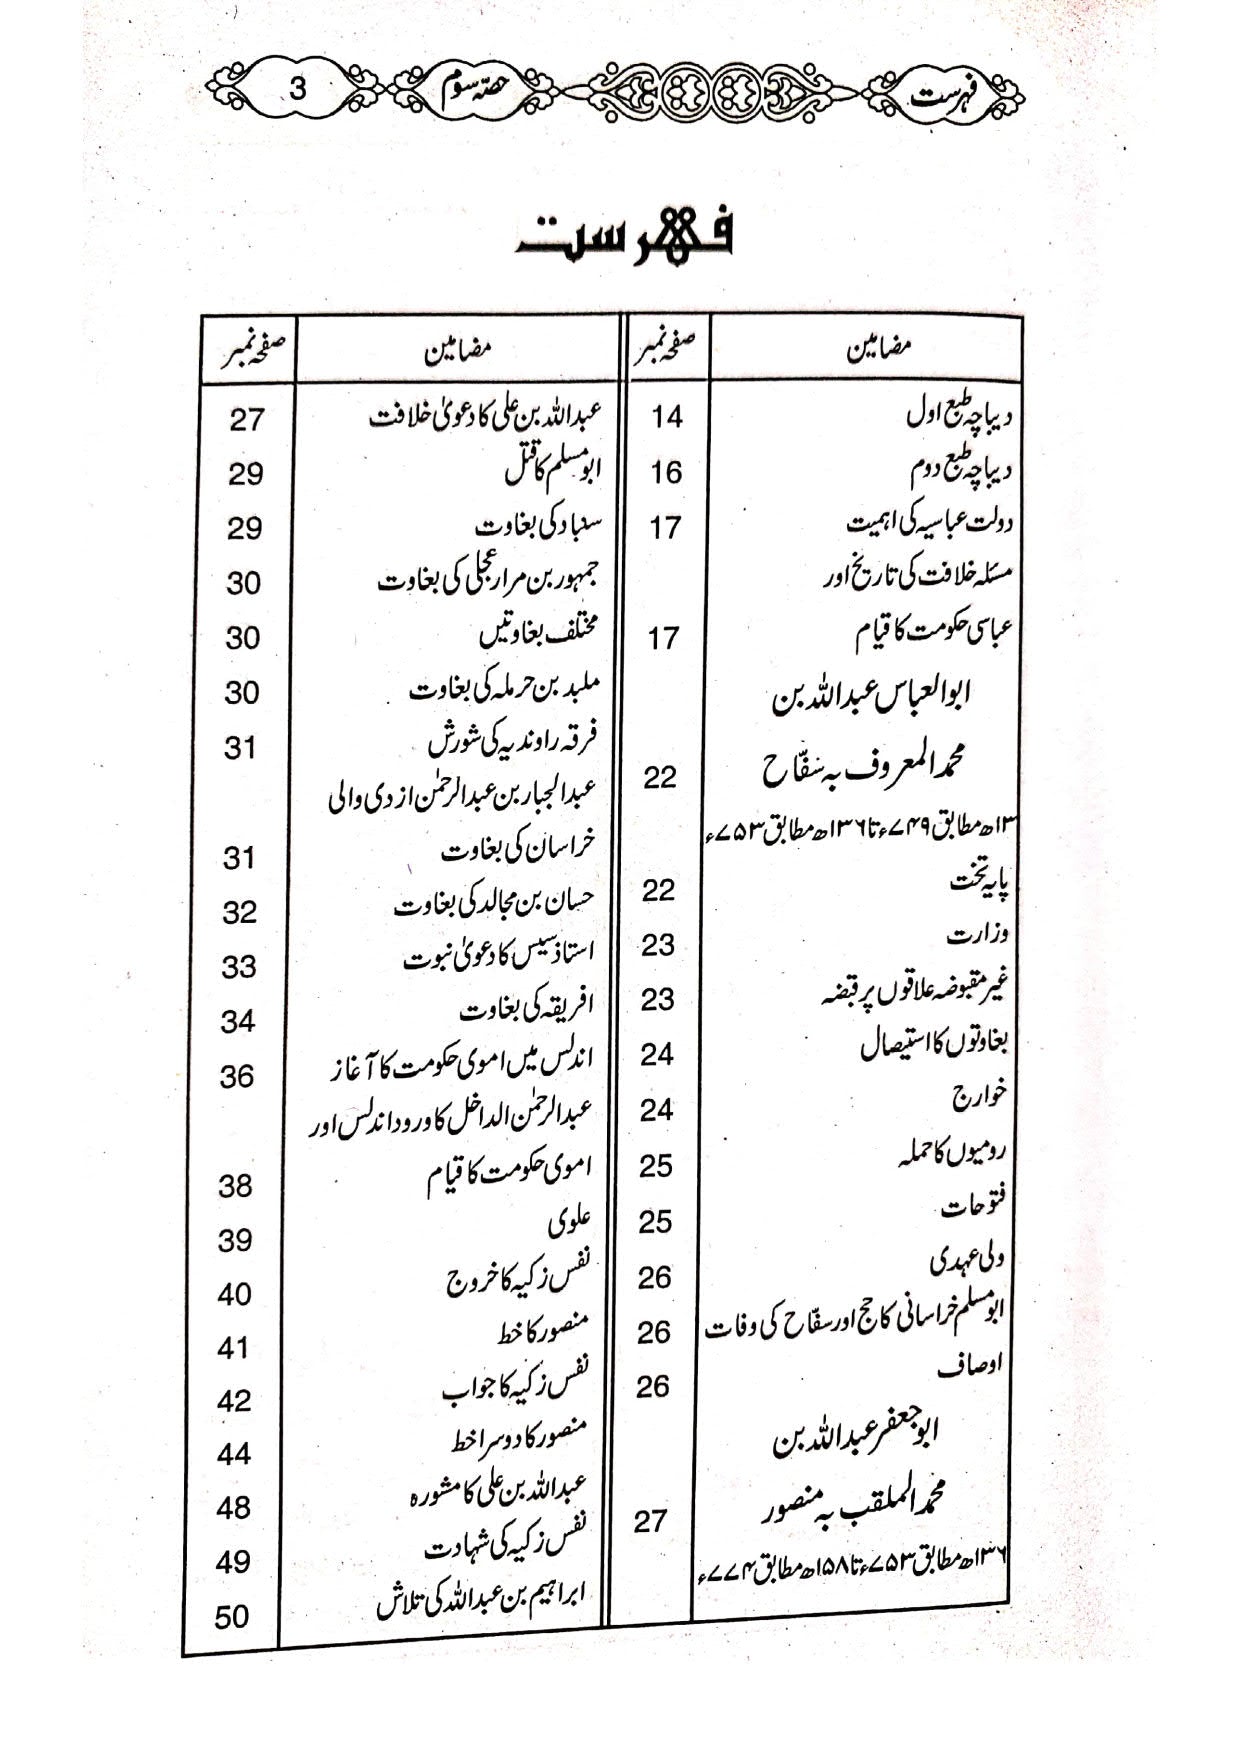 فہرست
حصّہ سوم
3
فہرست
مضامین صفحہ نمبر
دیباچہ طبع اول 14
دیباچہ طبع دوم 16
دولت عباسیہ کی اہمیت 17
مسئلہ خلافت کی تاریخ اور
عباسی حکومت کا قیام 17
ابوالعباس عبداللہ بن
محمد المعروف بہ سفّاح 22
۱۳ھ مطابق ۷۴۹ء تا ۱۳۶ھ مطابق ۷۵۳ء
پایہ تخت 22
وزارت 23
غیر مقبوضہ علاقوں پر قبضہ 23
بغاوتوں کا استیصال 24
خوارج 24
رومیوں کا حملہ 25
فتوحات 25
ولی عہدی 26
ابومسلم خراسانی کا حج اور سفّاح کی وفات 26
اوصاف 26
ابوجعفر عبداللہ بن
محمد الملقب بہ منصور 27
۱۳۶ھ مطابق ۷۵۳ء تا ۱۵۸ھ مطابق ۷۷۴ء
مضامین صفحہ نمبر
عبداللہ بن علی کا دعویٰ خلافت 27
ابومسلم کا قتل 29
سنباد کی بغاوت 29
جمہور بن مرار عجلی کی بغاوت 30
مختلف بغاوتیں 30
ملبد بن حرملہ کی بغاوت 30
فرقہ راوندیہ کی شورش 31
عبدالجبار بن عبدالرحمٰن ازدی والی
خراسان کی بغاوت 31
حسان بن مجالد کی بغاوت 32
استاذ سیس کا دعویٰ نبوت 33
افریقہ کی بغاوت 34
اندلس میں اموی حکومت کا آغاز 36
عبدالرحمٰن الداخل کا ورود اندلس اور
اموی حکومت کا قیام 38
علوی 39
نفس زکیہ کا خروج 40
منصور کا خط 41
نفس زکیہ کا جواب 42
منصور کا دوسرا خط 44
عبداللہ بن علی کا مشورہ 48
نفس زکیہ کی شہادت 49
ابراہیم بن عبداللہ کی تلاش 50